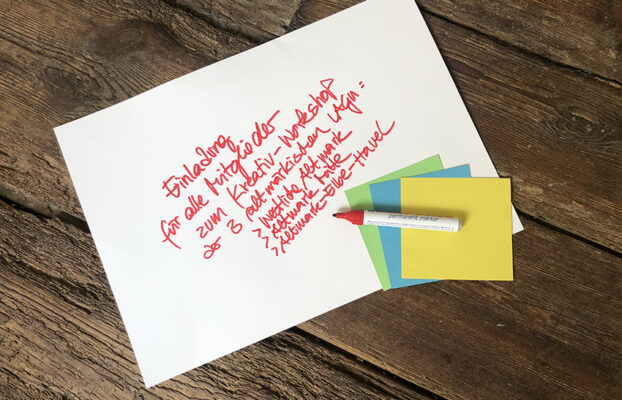 Einladung
für alle Mitglieder
zum Kreativ-Workshop
der 3 altmärkischen LAGn:
> Westliche Altmark
> Altmark Mitte
> Altmark-Elbe-Havel
permanent marker